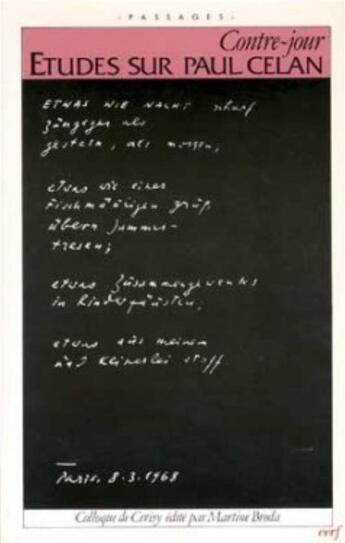 · PASSAGES ·
Contre-jour
ETUDES SUR PAUL CELAN
ETWAS WIE NACHT, scharf
züngiger als
gestern, als morgen;
etwas wie einer
Fischmäuligen Gruß
übern Jammer-
tresen;
etwas Zusammengewehtes
in Kinderfäusten;
etwas aus meinem
und keinerlei Stoff.
Paris, 8.3.1968
Colloque de Cerisy édité par Martine Broda
cerf